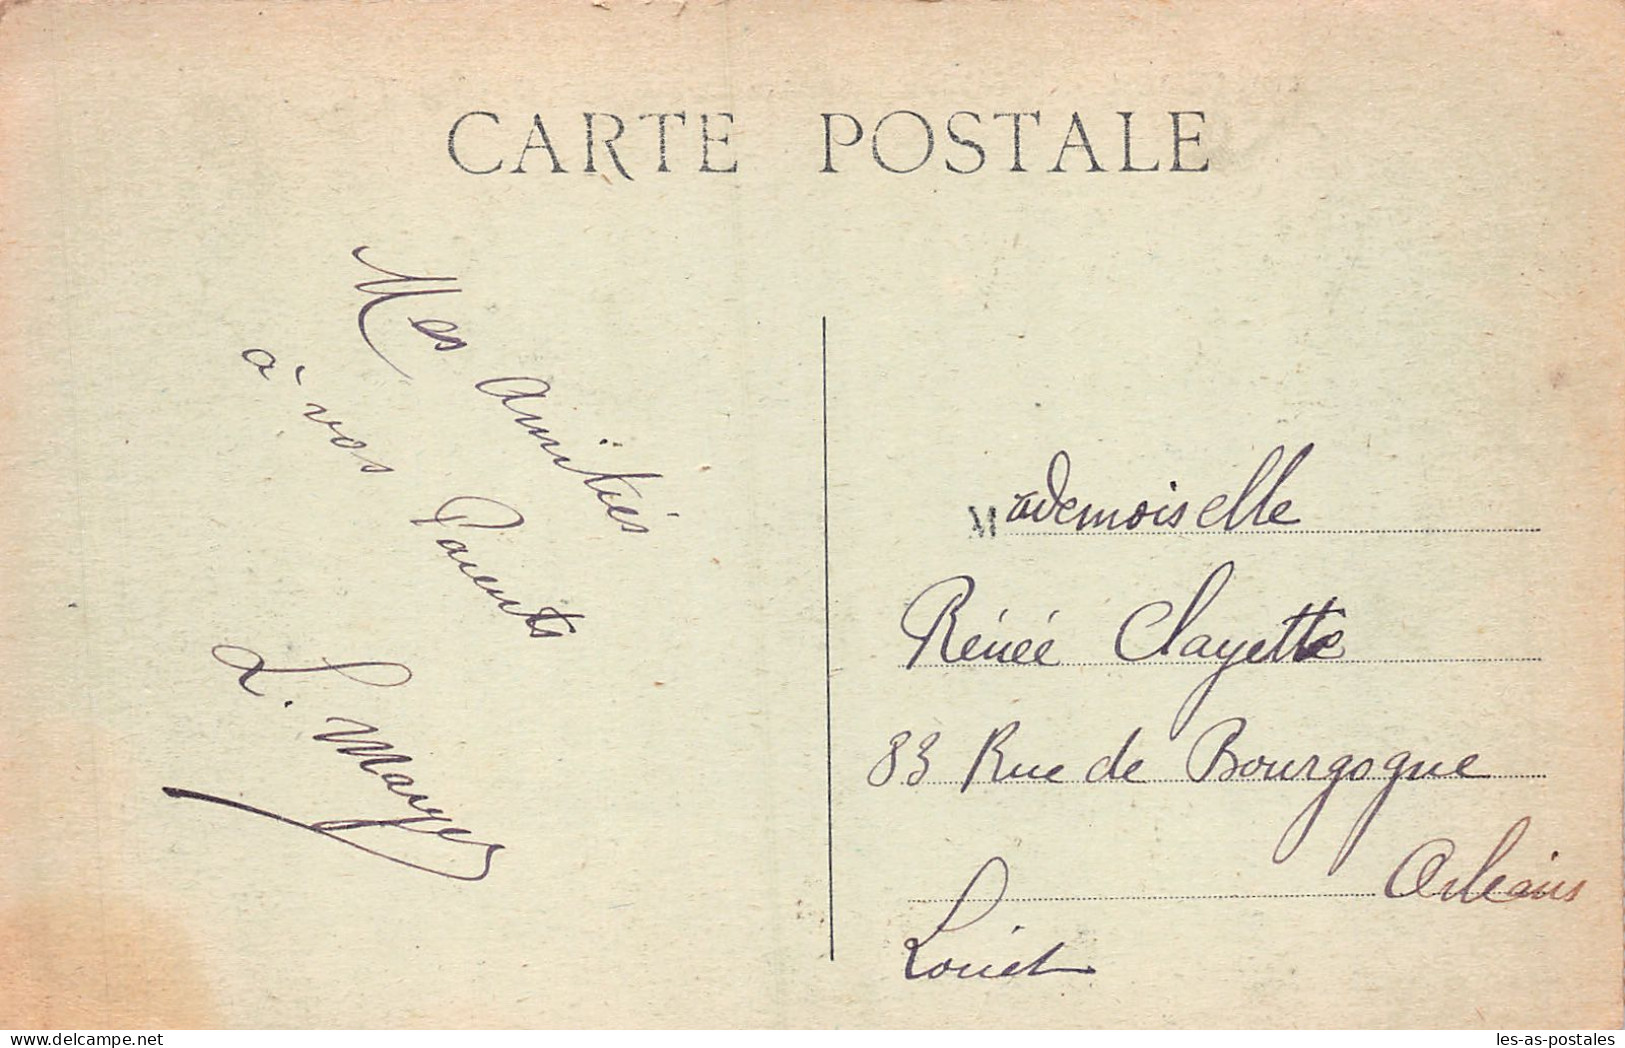 CARTE POSTALE
Mes amitiés
à vos Parents
Mademoiselle
Rénée Clayette
83 Rue de Bourgogne
Orléans
Loiret
delcampe.net
les-as-postales